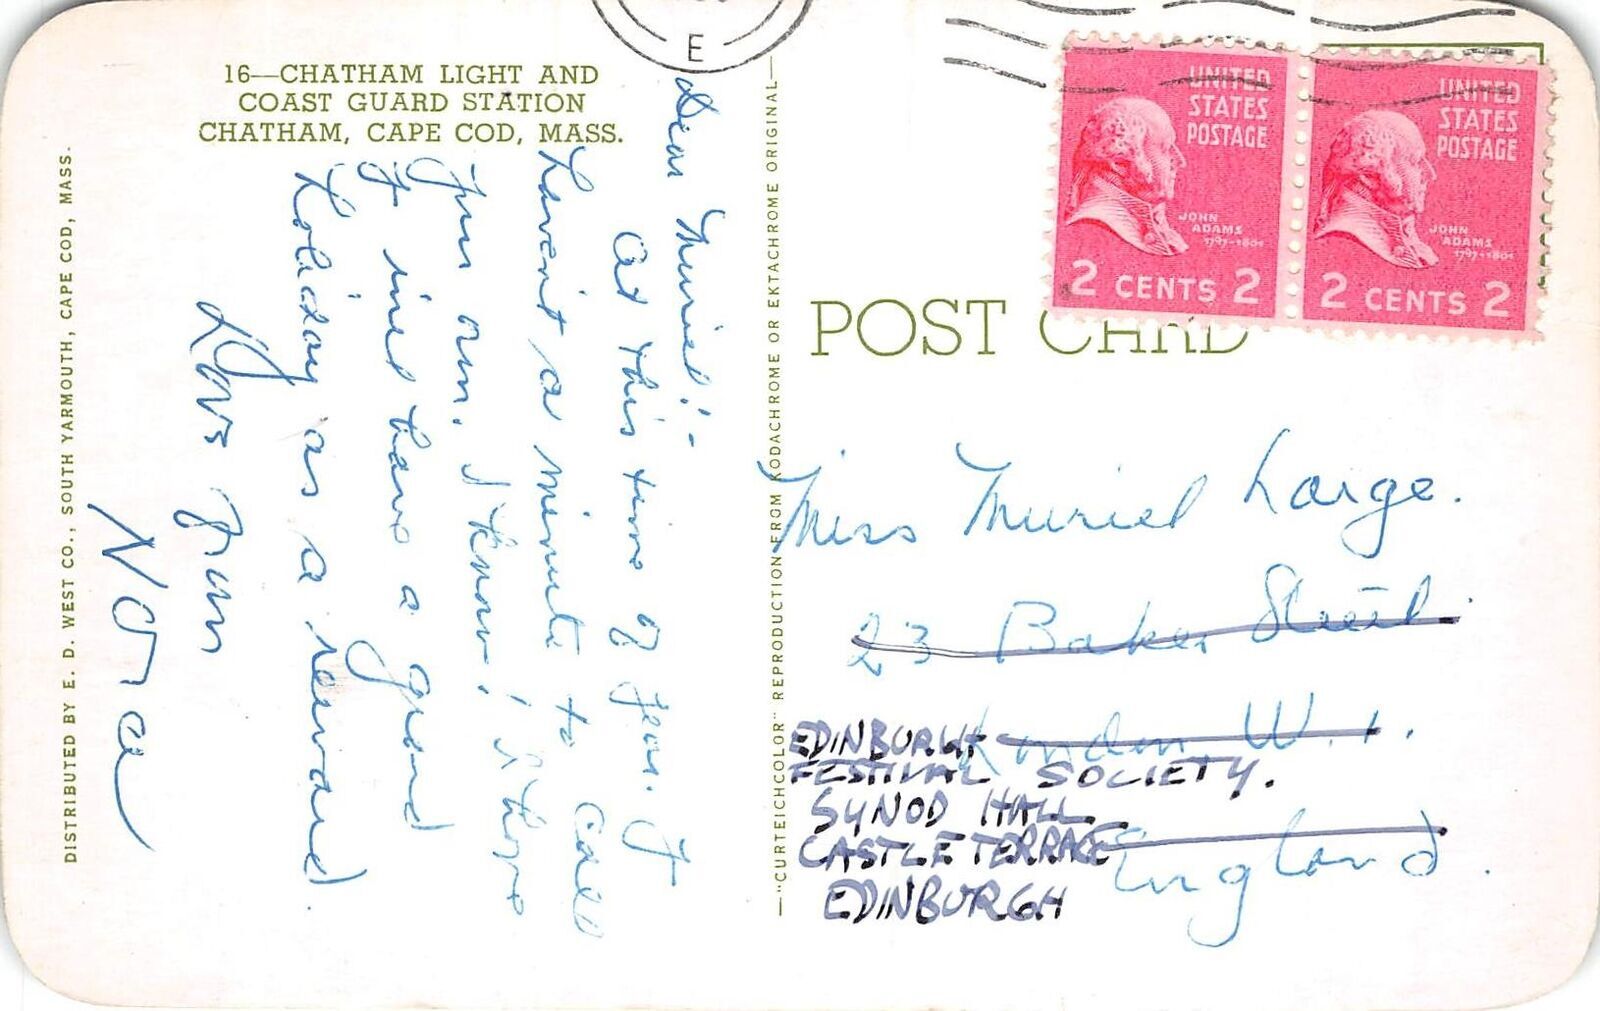 16—CHATHAM LIGHT AND
COAST GUARD STATION
CHATHAM, CAPE COD, MASS.
DISTRIBUTED BY E. D. WEST CO., SOUTH YARMOUTH, CAPE COD, MASS.
Dear Muriel:-
At this time of year. I
haven't a minute to call
my own. I know! I hope
you have a grand
holiday as a reward.
Love from
Nora
—"CURTEICHCOLOR" REPRODUCTION FROM KODACHROME OR EKTACHROME ORIGINAL—
E
UNITED
STATES
POSTAGE
JOHN
ADAMS
1797-1801
2 CENTS 2
UNITED
STATES
POSTAGE
JOHN
ADAMS
1797-1801
2 CENTS 2
POST CARD
Miss Muriel Large.
23 Baker Street.
London. W. 1.
England.
EDINBURGH
FESTIVAL SOCIETY.
SYNOD HALL
CASTLE TERRACE
EDINBURGH